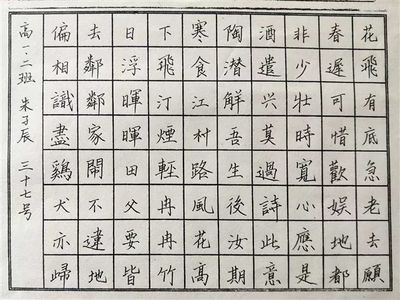 花飛有底急老去願
春遲可惜歡娛地都
非少壯時寬心應是
酒遣兴莫過詩此意
陶潜解吾生後汝期
寒食江村路風花高
下飛汀煙輕冉冉竹
日浮暉暉田父要皆
去鄰鄰家鬧不違地
偏相識盡鷄犬亦歸
高一·二班 朱子辰 三十七号